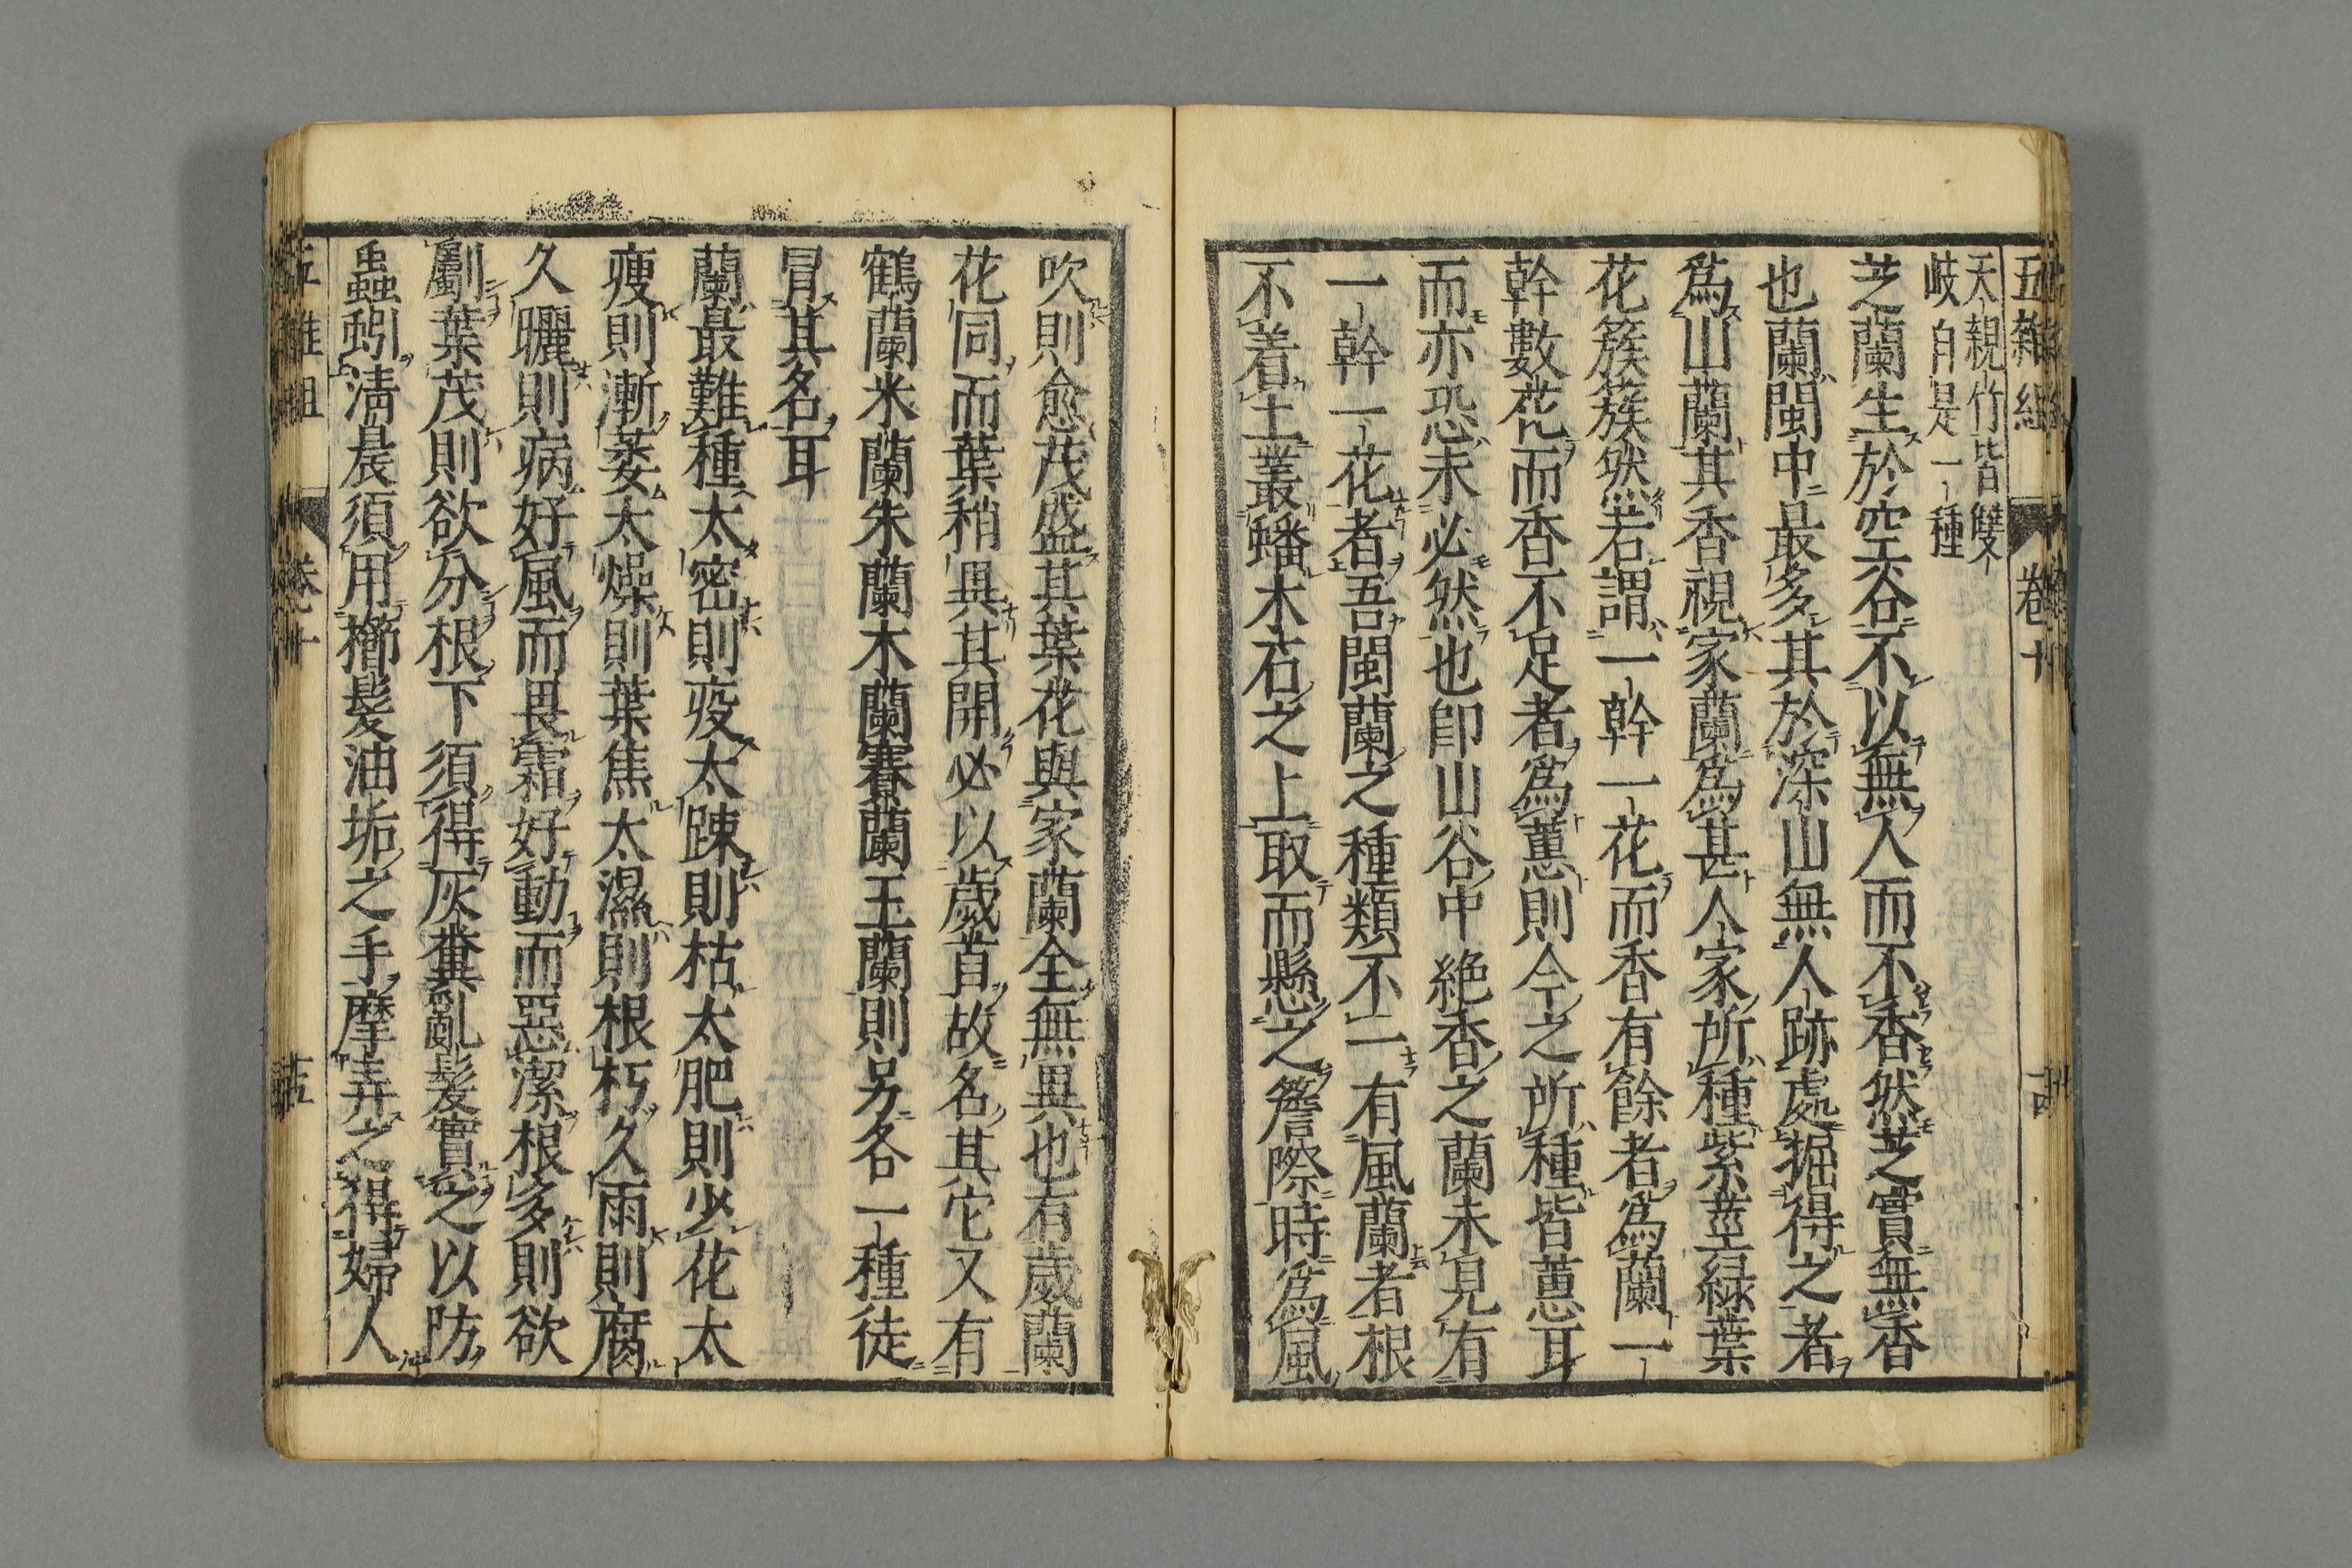 五雜組 卷十
天親竹皆雙
岐自是一種
芝蘭生於空谷不以無人而不香然芝實無香
也蘭閩中最多其於深山無人跡處掘得之者
爲山蘭其香視家蘭爲甚人家所種紫莖綠葉
花簇簇然若謂一幹一花而香有餘者爲蘭一
幹數花而香不足者爲蕙則今之所種皆蕙耳
而亦恐未必然也卽山谷中絶香之蘭未見有
一幹一花者吾閩蘭之種類不一有風蘭者根
不着土叢蟠木石之上取而懸之簷際時爲風
吹則愈茂盛其葉花與家蘭全無異也有歲蘭
花同而葉稍異其開必以歲首故名其它又有
鶴蘭米蘭朱蘭木蘭賽蘭玉蘭則另各一種徒
冐其名耳
蘭最難種太密則疫太踈則枯太肥則少花太
瘦則漸萎太燥則葉焦太濕則根朽久雨則腐
久曬則病好風而畏霜好動而惡潔根多則欲
劚葉茂則欲分根下須得灰糞亂髮實之以防
蟲蚓淸晨須用櫛髮油垢之手摩弄之得婦人
五雜組 卷十 十五